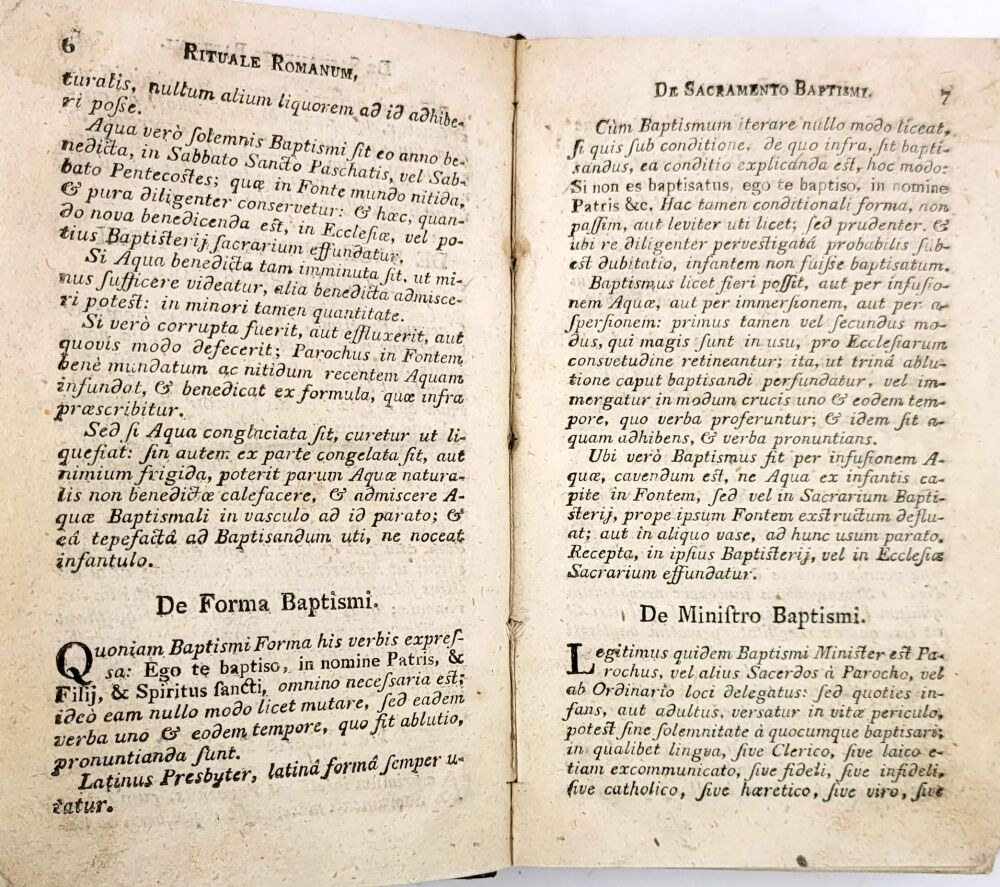 6
RITUALE ROMANUM,
turalis, nullum alium liquorem ad id adhibe-
ri poſſe.
Aqua verò ſolemnis Baptismi ſit eo anno be-
nedicta, in Sabbato Sancto Paschatis, vel Sab-
bato Pentecostes; quæ in Fonte mundo nitida,
& pura diligenter conservetur: & hæc, quan-
do nova benedicenda est, in Ecclesiæ, vel po-
tius Baptiſterij ſacrarium effundatur.
Si Aqua benedicta tam imminuta ſit, ut mi-
nus ſufficere videatur, alia benedicta admisce-
ri potest: in minori tamen quantitate.
Si verò corrupta fuerit, aut effluxerit, aut
quovis modo defecerit; Parochus in Fontem
benè mundatum ac nitidum recentem Aquam
infundat, & benedicat ex formula, quæ infra
præscribitur.
Sed ſi Aqua conglaciata ſit, curetur ut li-
quefiat: ſin autem ex parte congelata ſit, aut
nimium frigida, poterit parum Aquæ natura-
lis non benedictæ calefacere, & admiscere A-
quæ Baptismali in vasculo ad id parato; &
eâ tepefactâ ad Baptisandum uti, ne noceat
infantulo.
De Forma Baptismi.
Quoniam Baptismi Forma his verbis expreſ-
sa: Ego te baptiso, in nomine Patris, &
Filij, & Spiritus ſancti, omnino neceſsaria est;
ideò eam nullo modo licet mutare, ſed eadem
verba uno & eodem tempore, quo fit ablutio,
pronuntianda ſunt.
Latinus Presbyter, latinâ formâ ſemper u-
tatur.
DE SACRAMENTO BAPTISMI.
7
Cùm Baptismum iterare nullo modo liceat,
ſi quis ſub conditione, de quo infra, ſit bapti-
sandus, ea conditio explicanda est, hoc modo:
Si non es baptisatus, ego te baptiso, in nomine
Patris &c. Hac tamen conditionali forma, non
paſſim, aut leviter uti licet; ſed prudenter, &
ubi re diligenter pervestigatá probabilis ſub-
est dubitatio, infantem non fuiſse baptisatum.
Baptismus licet fieri poſſit, aut per infuſio-
nem Aquæ, aut per immerſionem, aut per a-
ſperſionem: primus tamen vel ſecundus mo-
dus, qui magis ſunt in usu, pro Eccleſiarum
consvetudine retineantur; ita, ut trinâ ablu-
tione caput baptisandi perfundatur, vel im-
mergatur in modum crucis uno & eodem tem-
pore, quo verba proferuntur; & idem ſit a-
quam adhibens, & verba pronuntians.
Ubi verò Baptismus fit per infuſionem A-
quæ, cavendum est, ne Aqua ex infantis ca-
pite in Fontem, ſed vel in Sacrarium Bapti-
ſterij, prope ipsum Fontem exſtructum deflu-
at; aut in aliquo vase, ad hunc usum parato.
Recepta, in ipſius Baptiſterij, vel in Eccleſiæ
Sacrarium effundatur.
De Miniſtro Baptismi.
Legitimus quidem Baptismi Minister est Pa-
rochus, vel alius Sacerdos à Parocho, vel
ab Ordinario loci delegatus: ſed quoties in-
fans, aut adultus, versatur in vitæ periculo,
potest ſine ſolemnitate à quocumque baptisari;
in qualibet lingua, ſive Clerico, ſive laico e-
tiam excommunicato, ſive fideli, ſive infideli,
ſive catholico, ſive hæretico, ſive viro, ſive